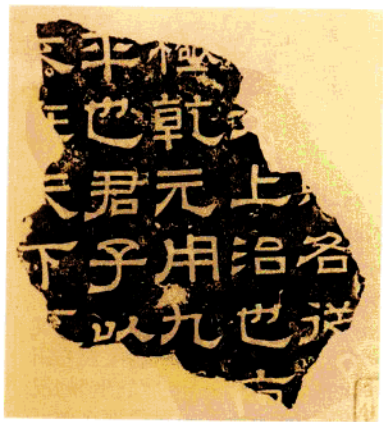 各從
上治也
極乾元用九
平也君子以
在天下